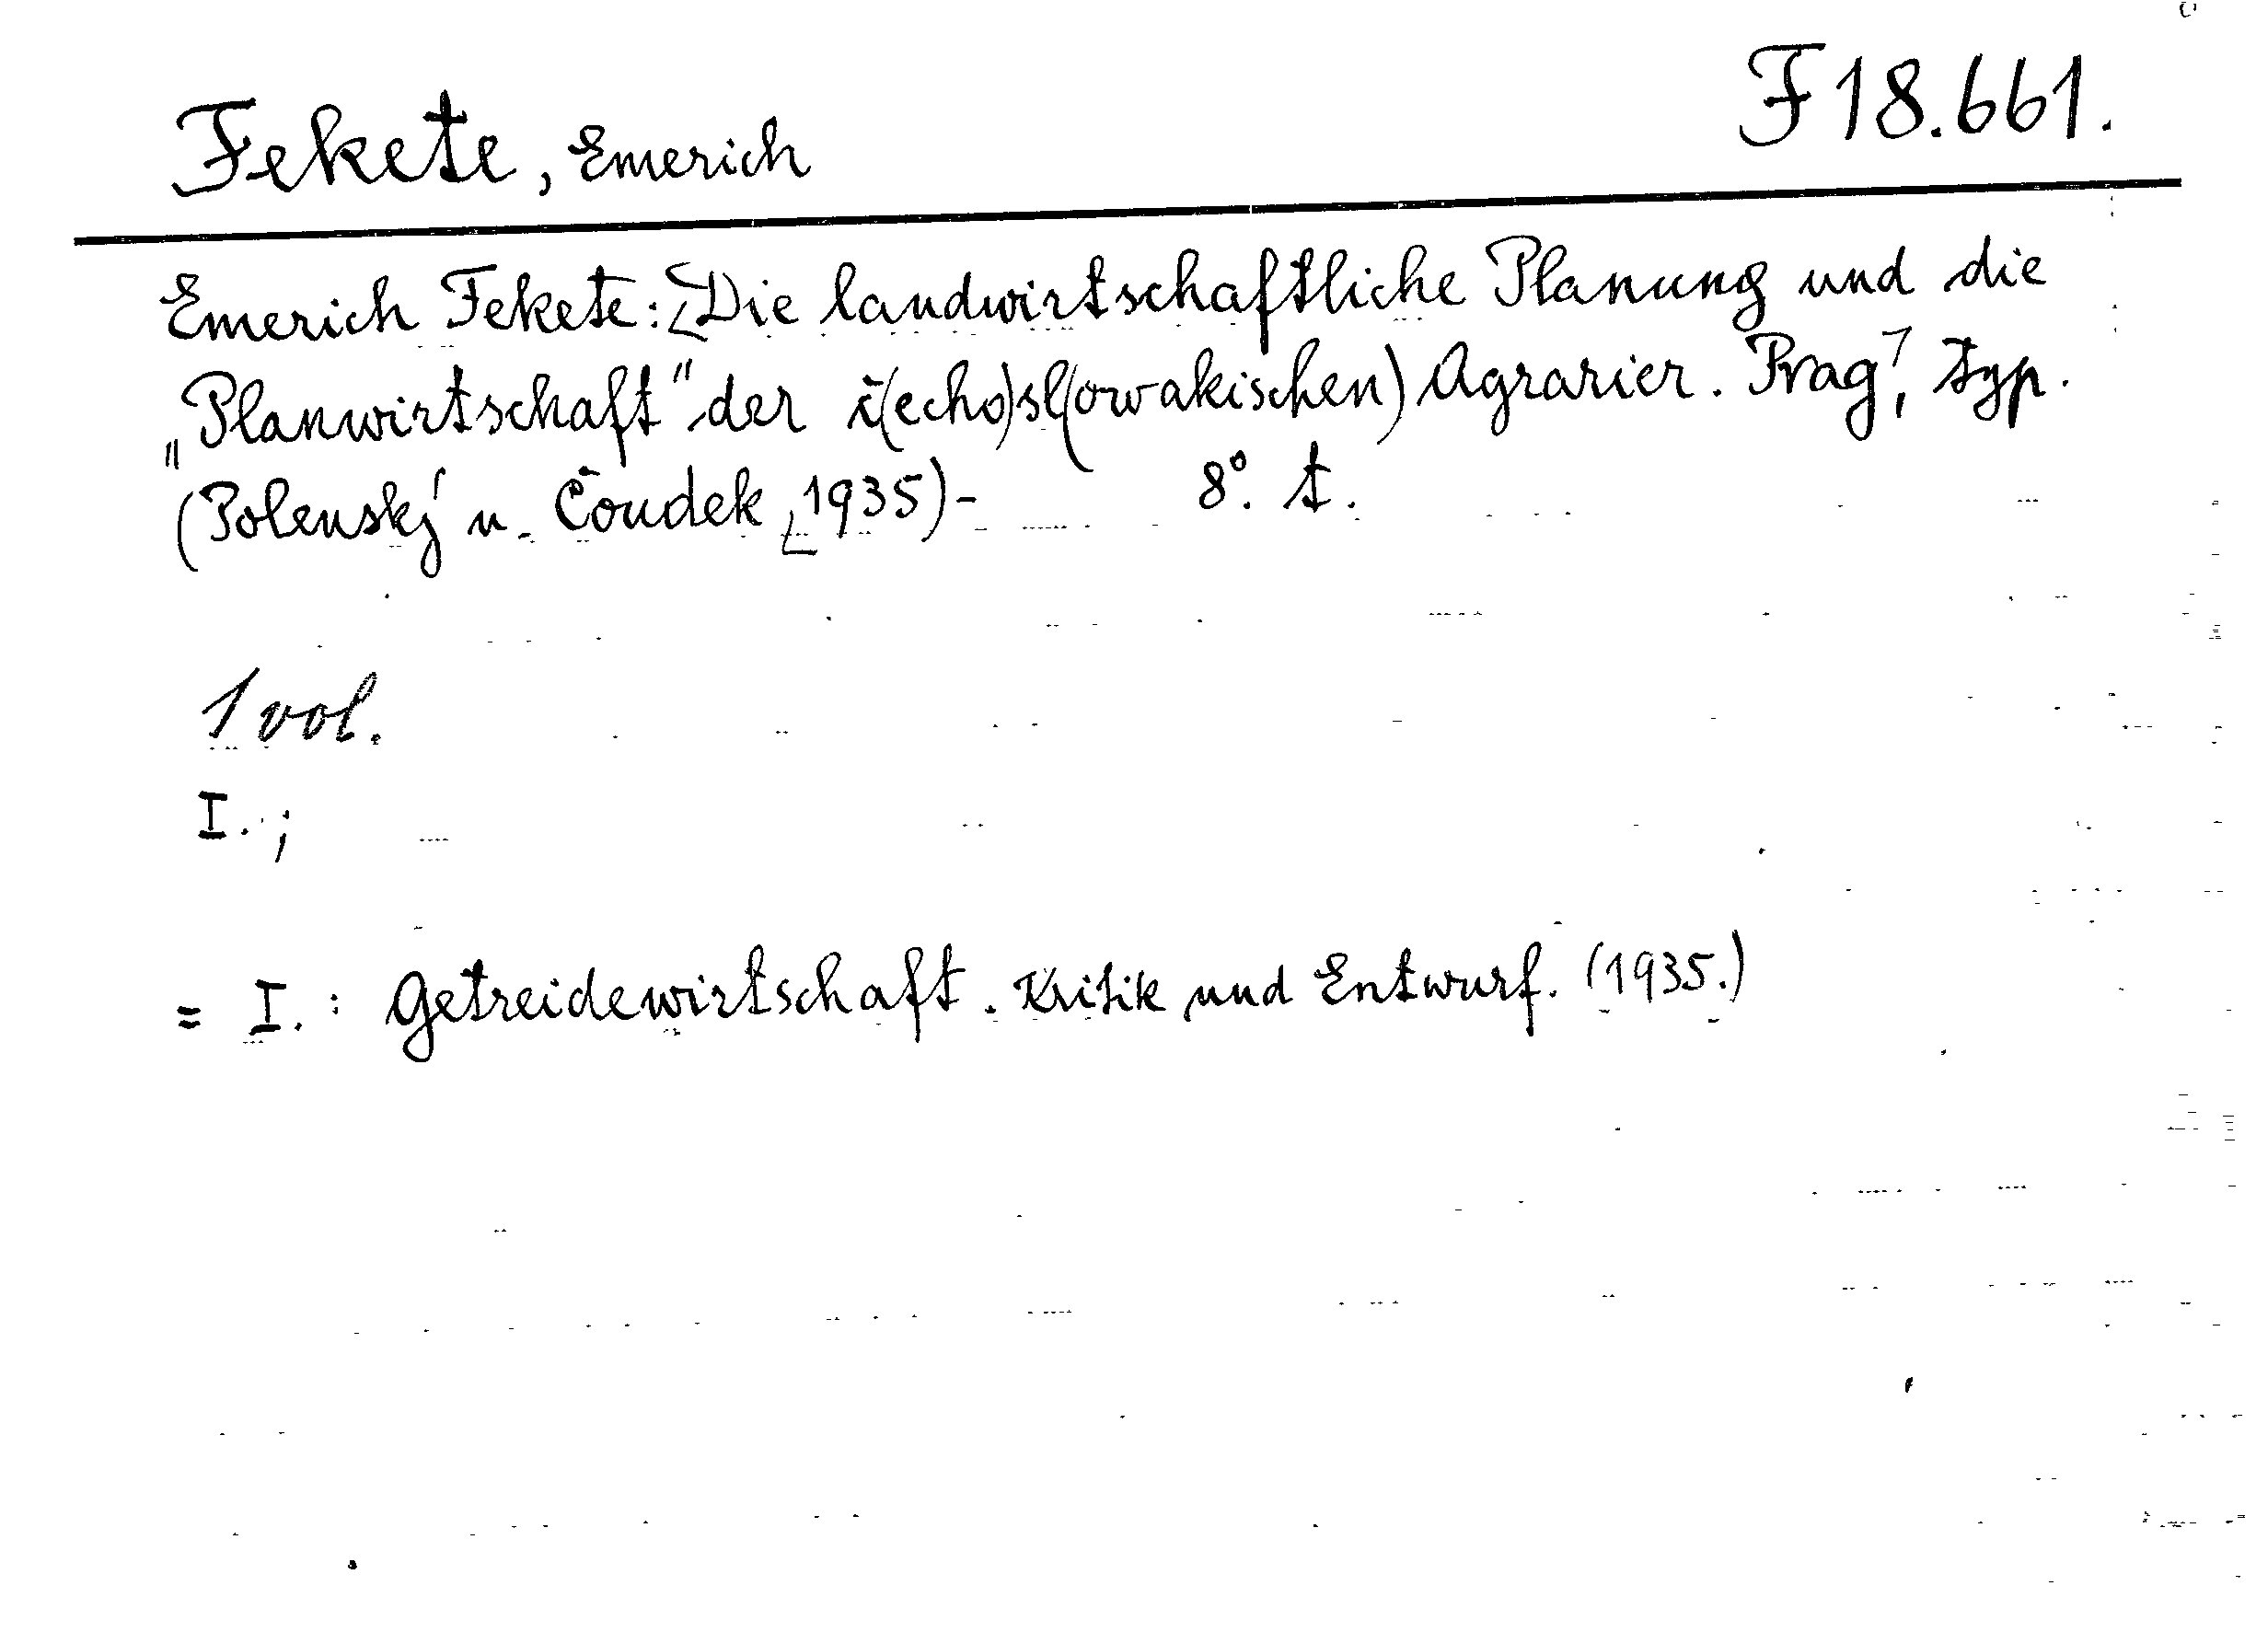 F 18.661.
Fekete, Emerich
Emerich Fekete: [Die landwirtschaftliche Planung und die
„Planwirtschaft" der č(echo)sl(owakischen) Agrarier. Prag], typ.
(Polenský u. Čoudek [1935)- 8°. t.
1 vol.
I. ;
= I. : Getreidewirtschaft. Kritik und Entwurf. (1935.)